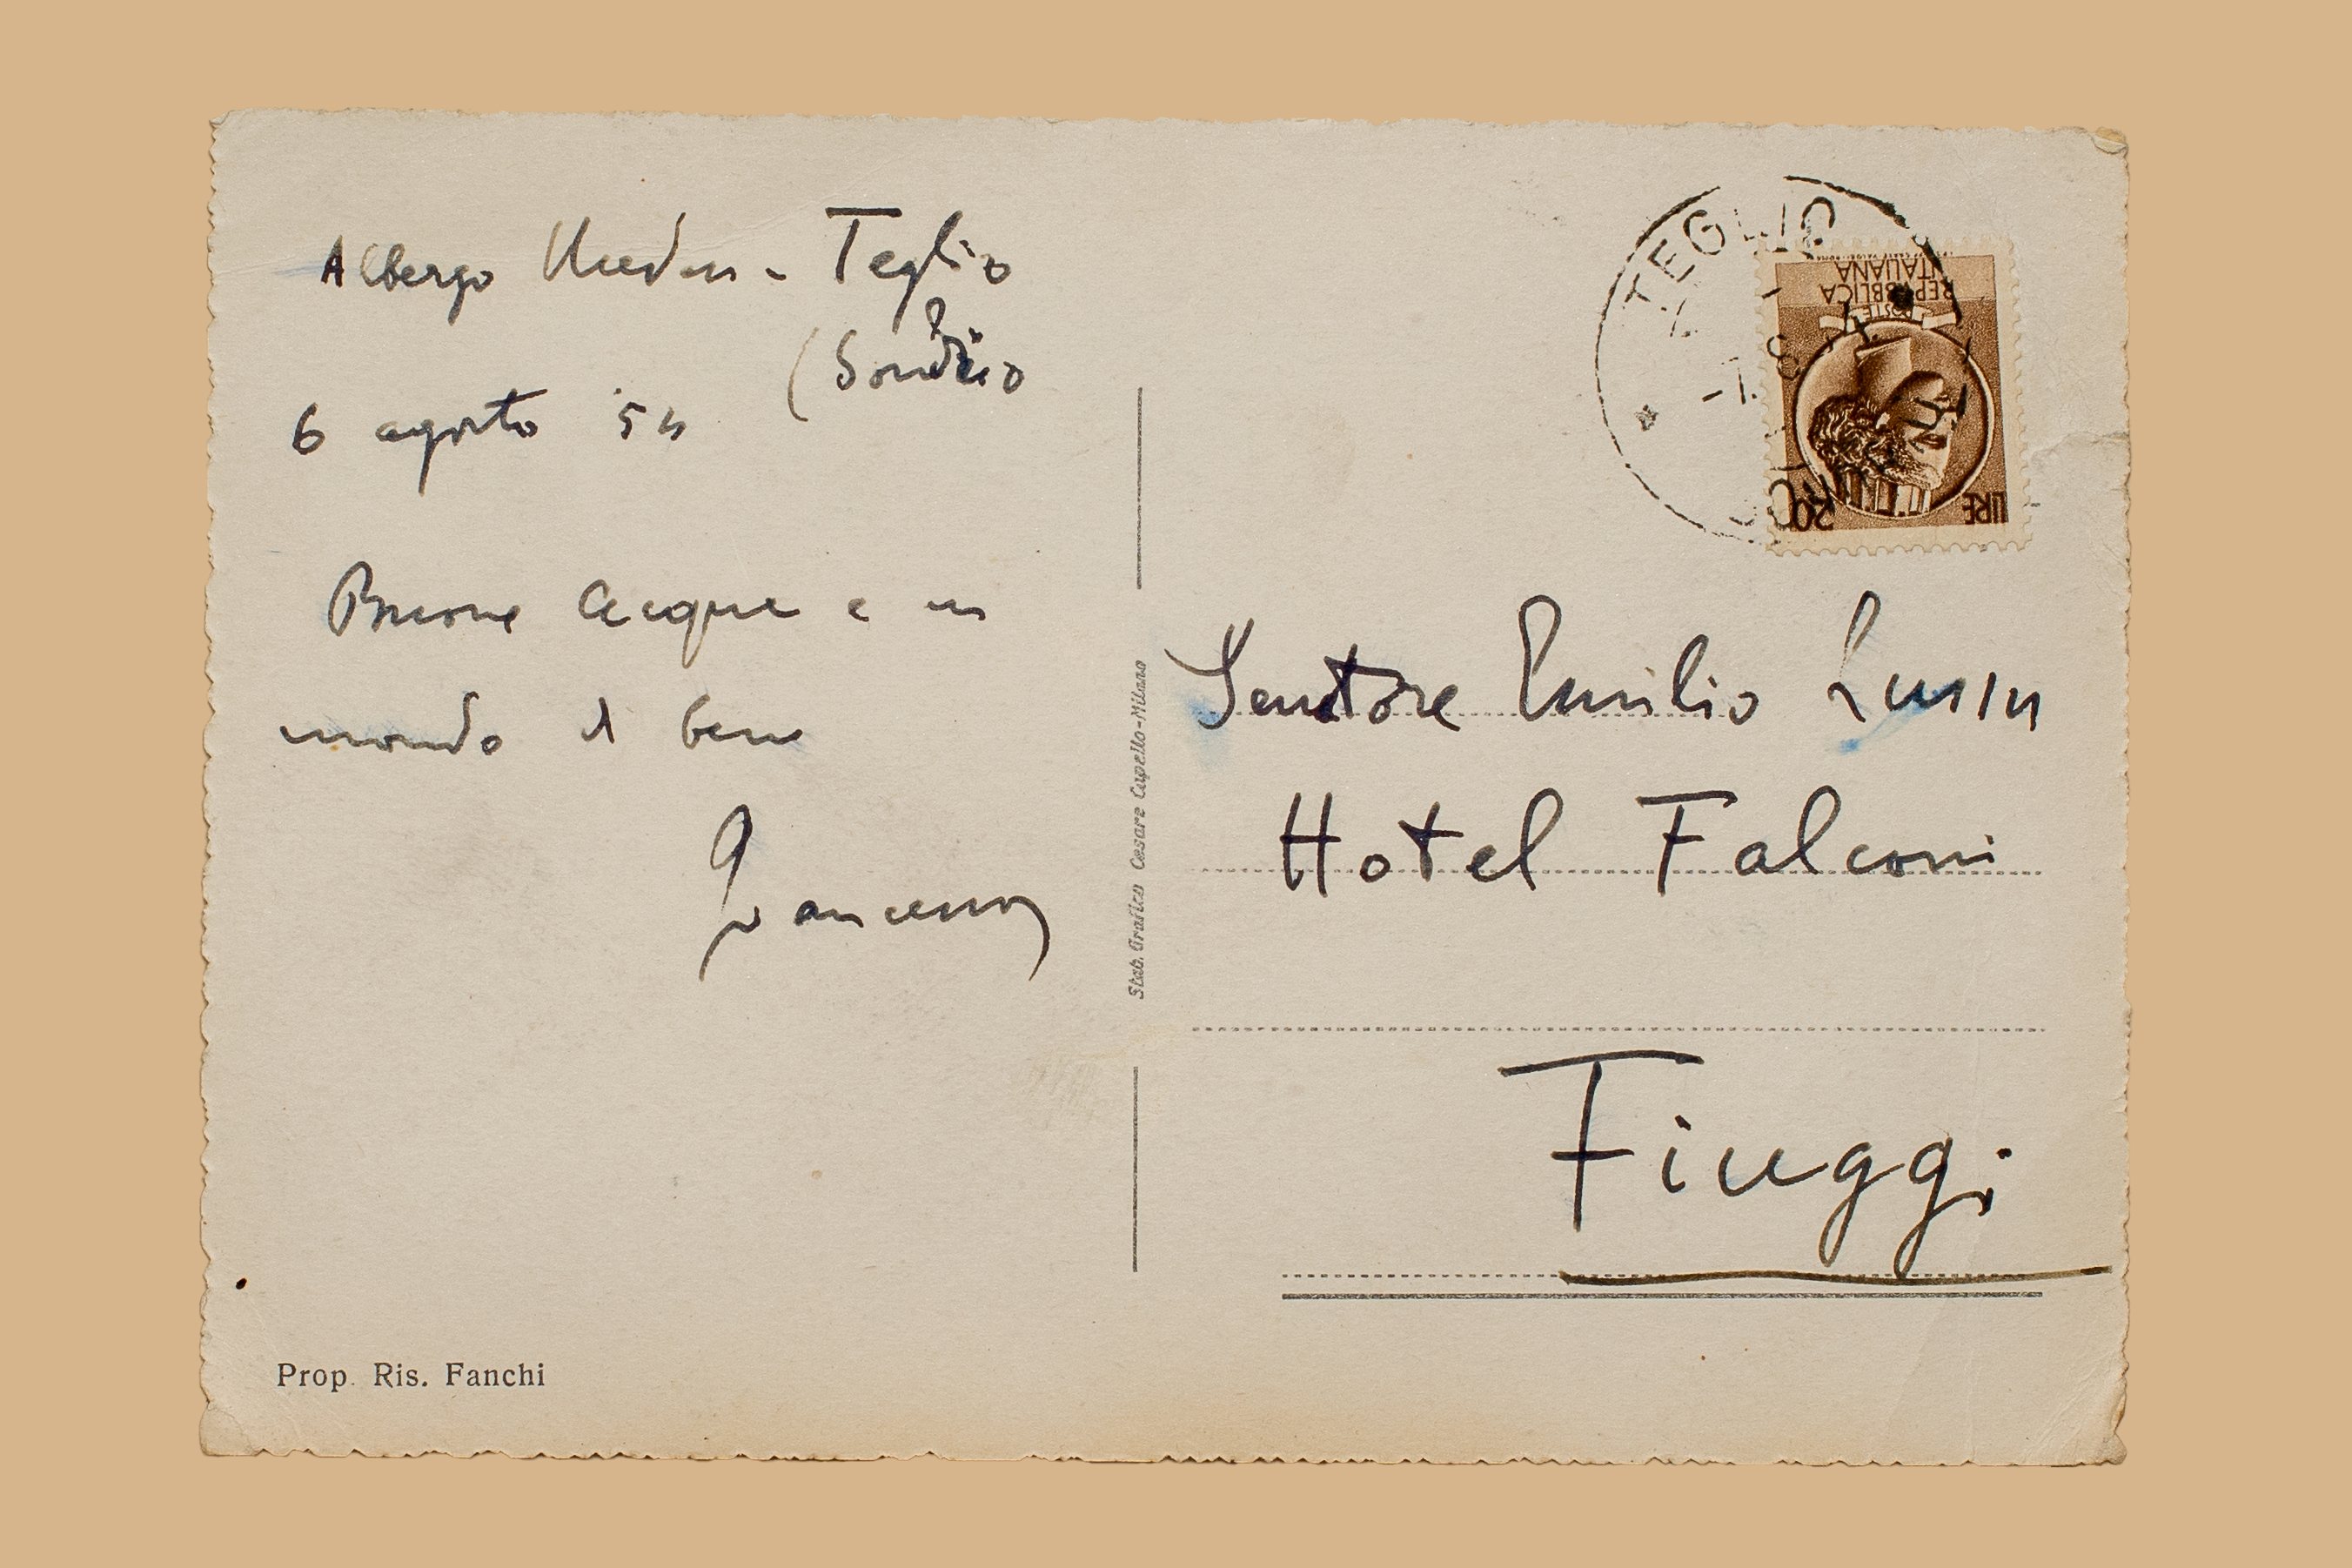 Albergo Meden - Teglio
(Sondrio
6 agosto '54
Buone acque e un
mondo di bene
Stab. Grafico Cesare Capello-Milano
Prop. Ris. Fanchi
TEGLIO
-7. 8
REPUBBLICA
ITALIANA
POSTE
LIRE
20
Senatore Emilio Lussu
Hotel Falconi
Fiuggi